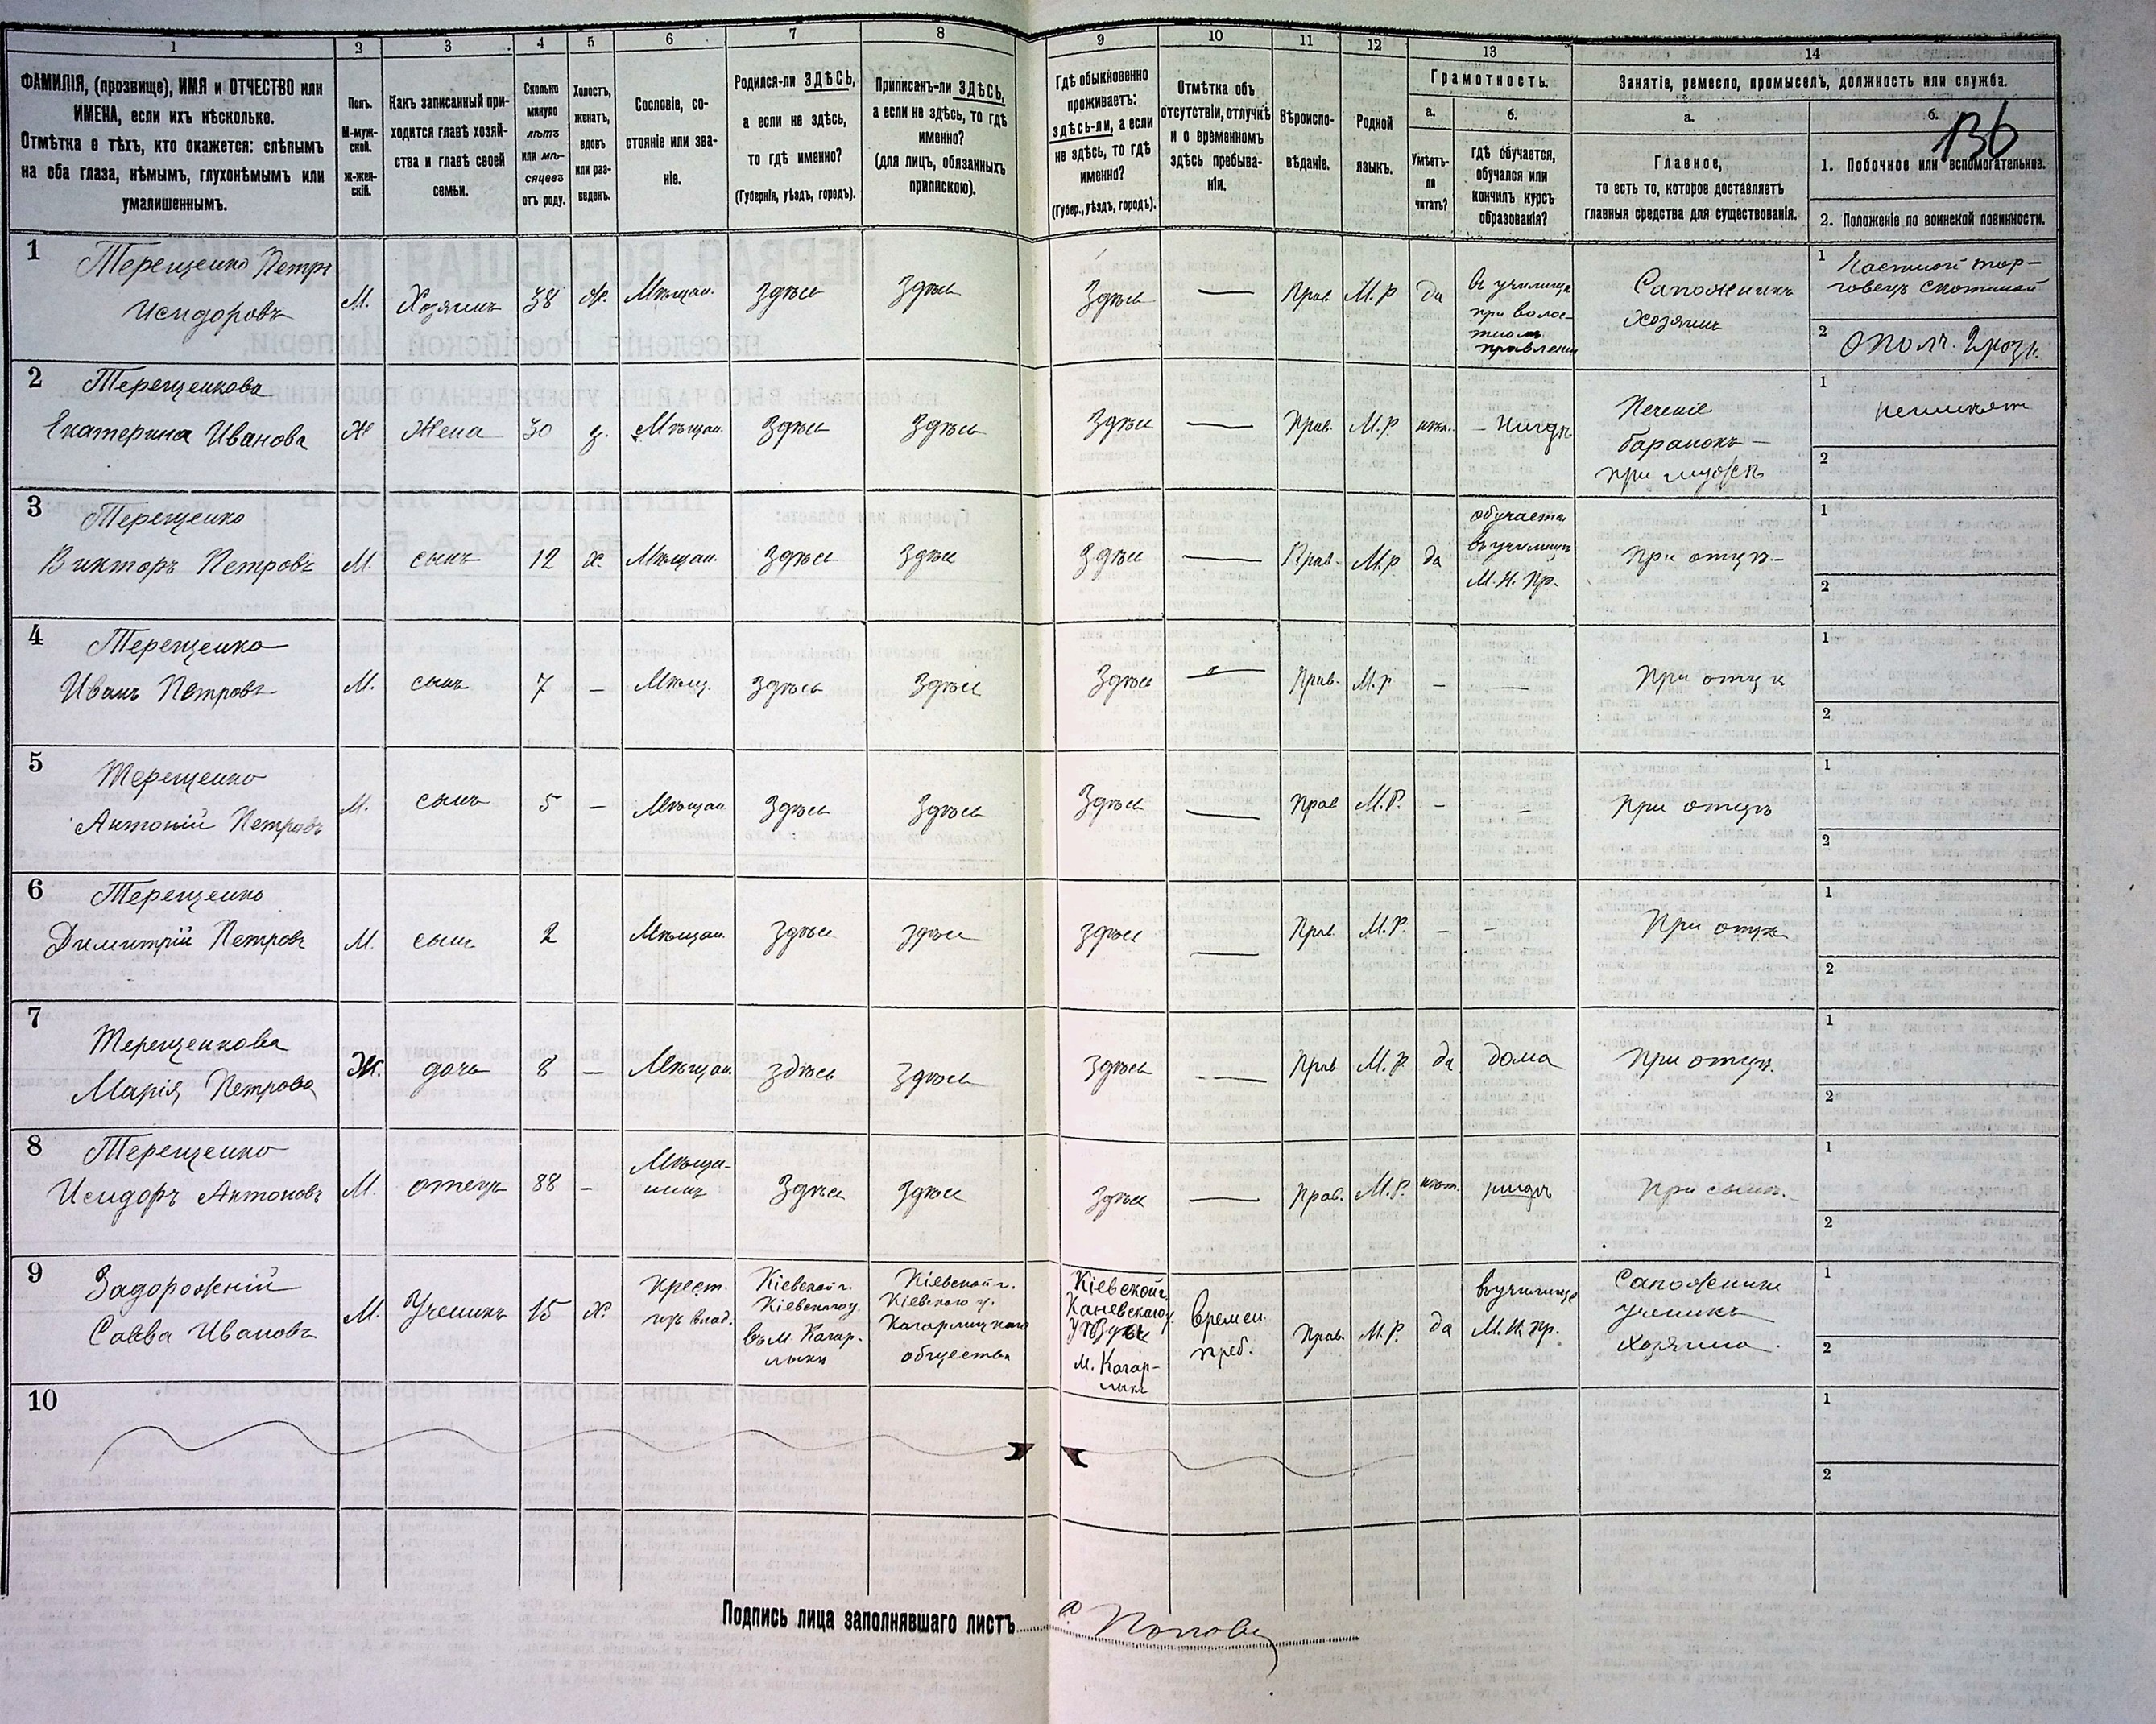 1 2 3 4 5 6 7 8 9 10 11 12 13 14
ФАМИЛІЯ, (прозвище), ИМЯ и ОТЧЕСТВО или
ИМЕНА, если ихъ нѣсколько.
Отмѣтка о тѣхъ, кто окажется: слѣпымъ
на оба глаза, нѣмымъ, глухонѣмымъ или
умалишеннымъ.
Полъ.
М-муж-
ской.
Ж-жен-
скій.
Какъ записанный при-
ходится главѣ хозяй-
ства и главѣ своей
семьи.
Сколько
минуло
лѣтъ
или мѣ-
сяцевъ
отъ роду.
Холостъ,
женатъ,
вдовъ
или раз-
веденъ.
Сословіе, со-
стояніе или зва-
ніе.
Родился-ли ЗДѢСЬ,
а если не здѣсь,
то гдѣ именно?
(Губернія, уѣздъ, городъ).
Приписанъ-ли ЗДѢСЬ,
а если не здѣсь, то гдѣ
именно?
(для лицъ, обязанныхъ
припискою).
Гдѣ обыкновенно
проживаетъ:
здѣсь-ли, а если
не здѣсь, то гдѣ
именно?
(Губер., уѣздъ, городъ).
Отмѣтка объ
отсутствіи, отлучкѣ
и о временномъ
здѣсь пребыва-
ніи.
Вѣроиспо-
вѣданіе.
Родной
языкъ.
Грамотность.
а.
Умѣетъ-
ли
читать?
б.
гдѣ обучается,
обучался или
кончилъ курсъ
образованія?
Занятіе, ремесло, промыселъ, должность или служба.
а.
Главное,
то есть то, которое доставляетъ
главныя средства для существованія.
б.
136
1. Побочное или вспомогательное.
2. Положеніе по воинской повинности.
1 Терещенко Петръ
Исидоровъ
М. Хозяинъ 38 ж. Мѣщан. Здѣсь Здѣсь Здѣсь — Прав. М.Р. да
въ училищѣ
при волос-
тномъ
правленіи
Сапожникъ
хозяинъ
1 тор-
говецъ скотиной
2 Ополч. 2 разр.
2 Терещенкова
Екатерина Иванова
Ж Жена 30 з. Мѣщан. Здѣсь Здѣсь Здѣсь — Прав. М.Р. нѣт. - нигдѣ
Печеніе
баранокъ —
при мужѣ
1
2
3 Терещенко
Викторъ Петровъ
М. сынъ 12 х. Мѣщан. Здѣсь Здѣсь Здѣсь — Прав. М.Р. да
обучается
въ училищѣ
М.Н. Пр.
При отцѣ.-
1
2
4 Терещенко
Иванъ Петровъ
М. сынъ 7 — Мѣщ. Здѣсь Здѣсь Здѣсь — Прав. М.Р — — При отцѣ
1
2
5 Терещенко
Антоній Петровъ
М. сынъ 5 — Мѣщан. Здѣсь Здѣсь Здѣсь — Прав М.Р. — — При отцѣ
1
2
6 Терещенко
Димитрій Петровъ
М. сынъ 2 Мѣщан. Здѣсь Здѣсь Здѣсь — Прав. М.Р. — — При отцѣ
1
2
7 Терещенкова
Марія Петрова
Ж. дочь 8 — Мѣщан. здѣсь Здѣсь Здѣсь — Прав М.Р. да дома При отцѣ.
1
2
8 Терещенко
Исидоръ Антоновъ
М. отецъ 88 —
Мѣща-
нинъ
Здѣсь Здѣсь Здѣсь — Прав. М.Р. нѣт. нигдѣ При сынѣ.-
1
2
9 Задорожній
Савва Ивановъ
М. Ученикъ 15 х.
крест.
изъ влад.
Кіевской г.
Кіевского у.
въ м. Кагар-
лыкъ
Кіевской г.
Кіевского у.
Кагарлицкаго
общества
Кіевской г.
Каневскаго у.
Уѣзда
м. Кагар-
лыкъ
времен.
преб.
Прав. М.Р. да
въ училищѣ
М.Н. Пр.
Сапожникъ
ученикъ
хозяина.
1
2
10
1
2
Подпись лица заполнявшаго листъ